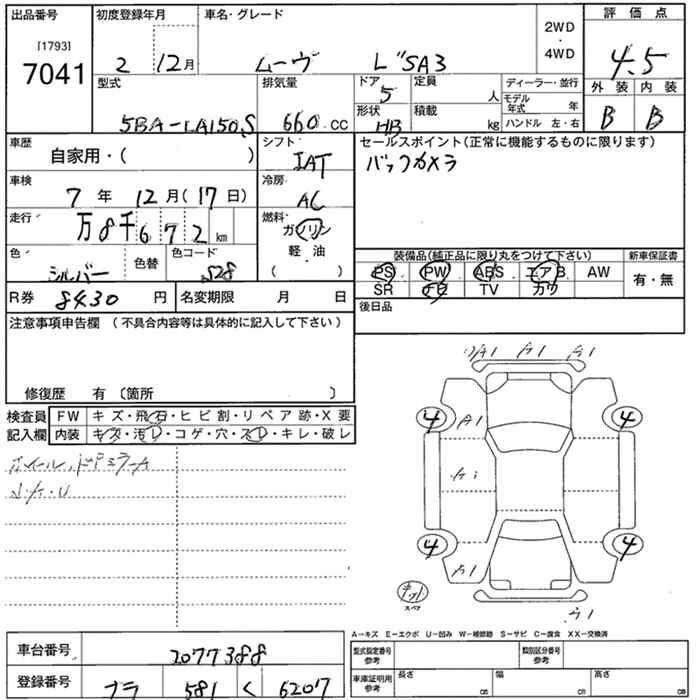 出品番号 初度登録年月 車名・グレード 2WD・4WD 評価点
[1793]
7041 2 12月 ムーヴ L"SA3 4.5
型式 排気量 ドア 5 定員 人 ディーラー・並行 外装 内装
モデル年式 年
5BA-LA150S 660 cc 形状 HB 積載 kg ハンドル 左・右 B B
車歴 自家用・( ) シフト IAT セールスポイント(正常に機能するものに限ります)
バックカメラ
車検 7年 12月(17日) 冷房 AC
走行 万8千672km 燃料 ガソリン
軽・油
( )
色 シルバー 色替 色コード S28
装備品(純正品に限り丸をつけて下さい) 新車保証書
PS PW ABS エアB AW 有・無
SR ナビ TV カワ
R券 8430円 名変期限 月 日
後日品
注意事項申告欄 (不具合内容等は具体的に記入して下さい)
修復歴 有 〔箇所 〕
検査員 FW キズ・飛石・ヒビ割・リペア跡・X要
記入欄 内装 キズ・汚レ・コゲ・穴・スレ・キレ・破レ
ホイール、ドアミラーA
A1 A1
4 A1 4
4 4
スペア
A-キズ E-エクボ U-凹み W-補修跡 S-サビ C-腐食 XX-交換済
車台番号 2077388
型式指定番号 参考 類別区分番号 参考
登録番号 ナラ 581 く 6207
車庫証明用 参考 長さ cm 幅 cm 高さ cm